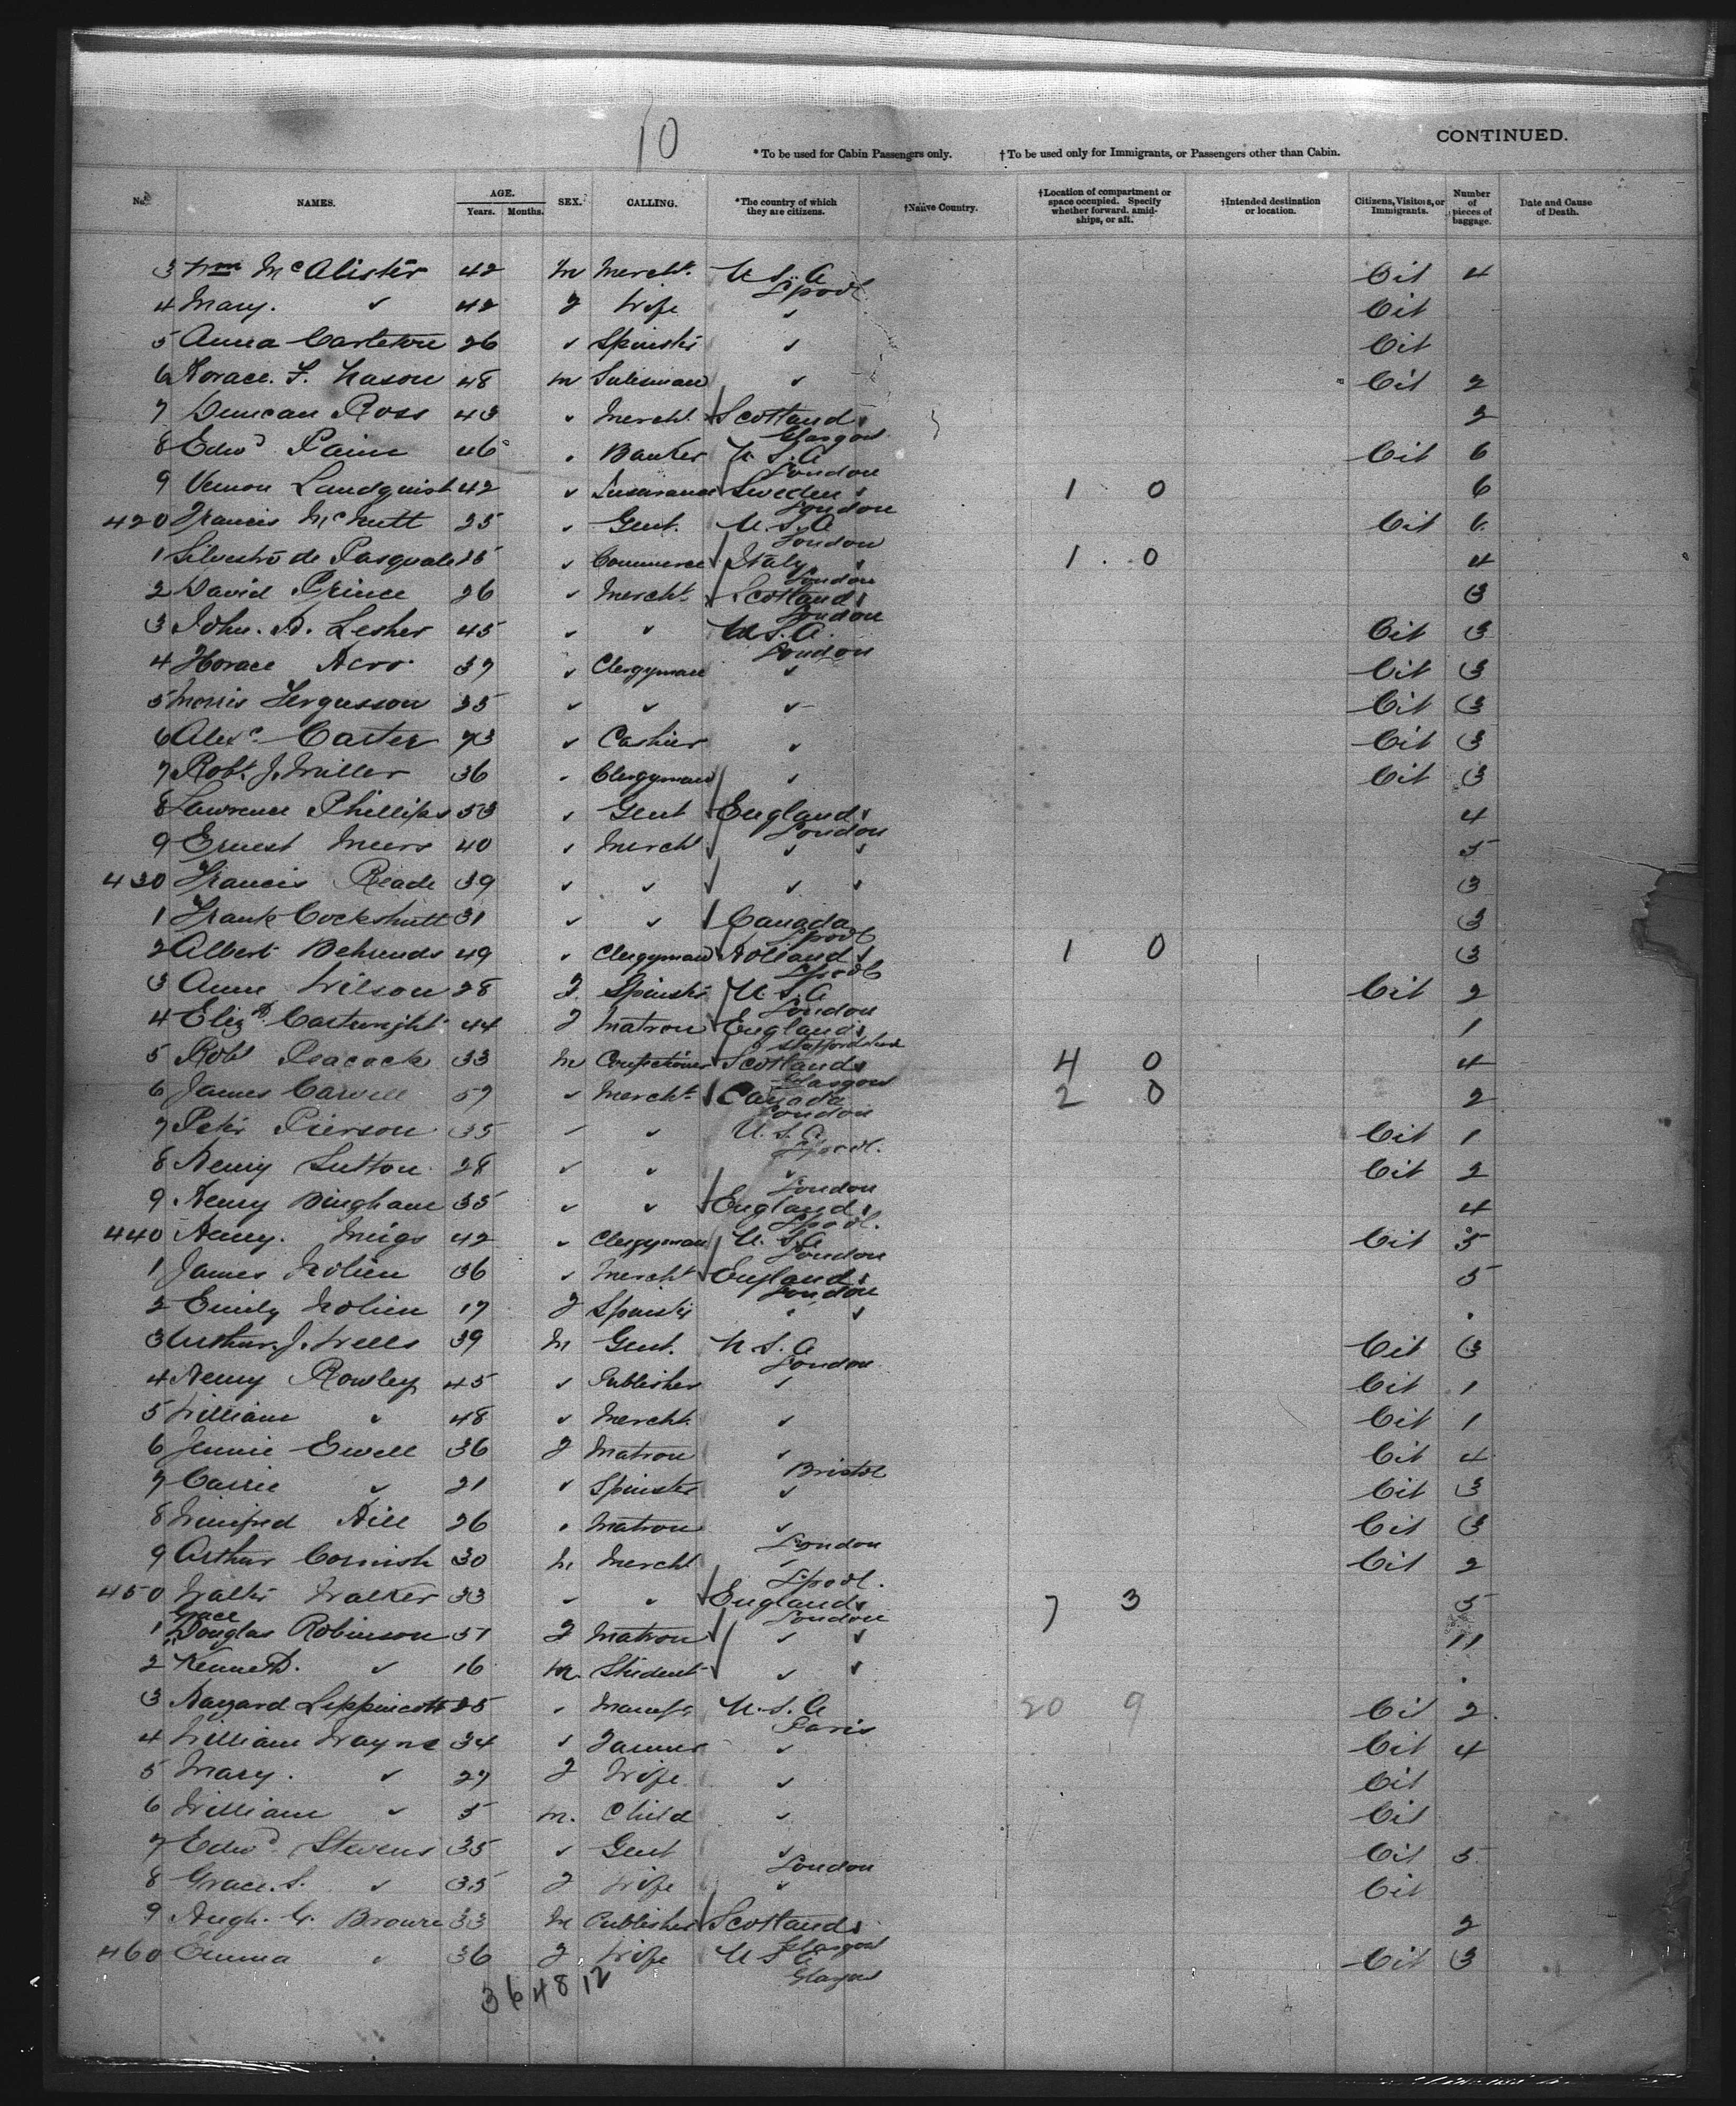 10
CONTINUED.
*To be used for Cabin Passengers only. †To be used only for Immigrants, or Passengers other than Cabin.
No. NAMES. AGE. Years. Months. SEX. CALLING. *The country of which they are citizens. †Native Country. †Location of compartment or space occupied. Specify whether forward, amidships, or aft. †Intended destination or location. Citizens, Visitors, or Immigrants. Number of pieces of baggage. Date and Cause of Death.
3 Wm McAlister 42 M Mercht. U.S.A Lpool. Cit 4
4 Mary. " 42 F Wife " Cit
5 Anna Carleton 26 " Spinstr " Cit
6 Horace. F. Nason 48 M Salesman " Cit 2
7 Duncan Ross 43 " Mercht. Scotland Glasgow 2
8 Edwd Paine 46 " Banker U.S.A London Cit 6
9 Vernon Landquist 42 " Insurance Sweden London 1 0 6
420 Francis McNutt 25 " Gent. U.S.A London Cit 6
1 Silvestro de Pasquale 25 " Commerce Italy London 1 0 4
2 David Prince 26 " Mercht. Scotland London 3
3 John. A. Lesher 45 " " U.S.A. London Cit 3
4 Horace 37 " Clergyman " Cit 3
5 Morris Fergusson 35 " " " Cit 3
6 Alexr Carter 73 " Cashier " Cit 3
7 Robt. J. Miller 36 " Clergyman " Cit 3
8 Lawrence Phillips 53 " Gent England London 4
9 Ernest 40 " Mercht " " 5
430 Francis Reade 39 " " " " 3
1 Frank Cockshutt 31 " " Canada Lpool 3
2 Albert Behrends 49 " Clergyman Holland Lpool 1 0 3
3 Anne Wilson 28 F. Spinstr U.S.A London Cit 2
4 Elizth Cartwright 44 F Matron England Staffordshire 1
5 Robt Peacock 33 M Confectioner Scotland Glasgow 4 0 4
6 James Carvell 57 " Mercht. Canada London 2 0 2
7 Petr Pierson 35 " " U.S.A. Lpool. Cit 1
8 Henry Sutton 28 " " " London Cit 2
9 Henry Bingham 35 " " England Lpool. 4
440 Henry. Meigs 42 " Clergyman U.S.A London Cit 5
1 James Nolien 36 " Mercht England London 5
2 Emily Nolien 17 F Spinstr " " "
3 Arthur. J. Wells 39 M Gent. U.S.A London Cit 3
4 Henry Rowley 45 " Publisher " Cit 1
5 William " 48 " Mercht. " Cit 1
6 Jennie Ewell 36 F Matron " Bristol Cit 4
7 Carrie " 21 " Spinster " Cit 3
8 Winifred Hill 26 " Matron " London Cit 3
9 Arthur Cornish 30 M Mercht " Lpool. Cit 2
450 Waltr Walker 33 " " England London 7 3 5
Grace
1 Douglas Robinson 51 F Matron " " 11
2 Kenneth. " 16 M. Student " " "
3 Hazard Lippincott 25 " Manufr U.S.A Paris 20 9 Cit 2
4 William Wayne 34 " Farmer " Cit 4
5 Mary. " 27 F Wife " Cit
6 William " 5 M. Child " Cit
7 Edwd Stevens 35 " Gent " London Cit 5
8 Grace. S. " 35 F Wife " Cit
9 Hugh. G. Brown 33 M Publisher Scotland Glasgow 2
460 Emma " 36 F Wife U.S.A Glasgow Cit 3
36 48 12